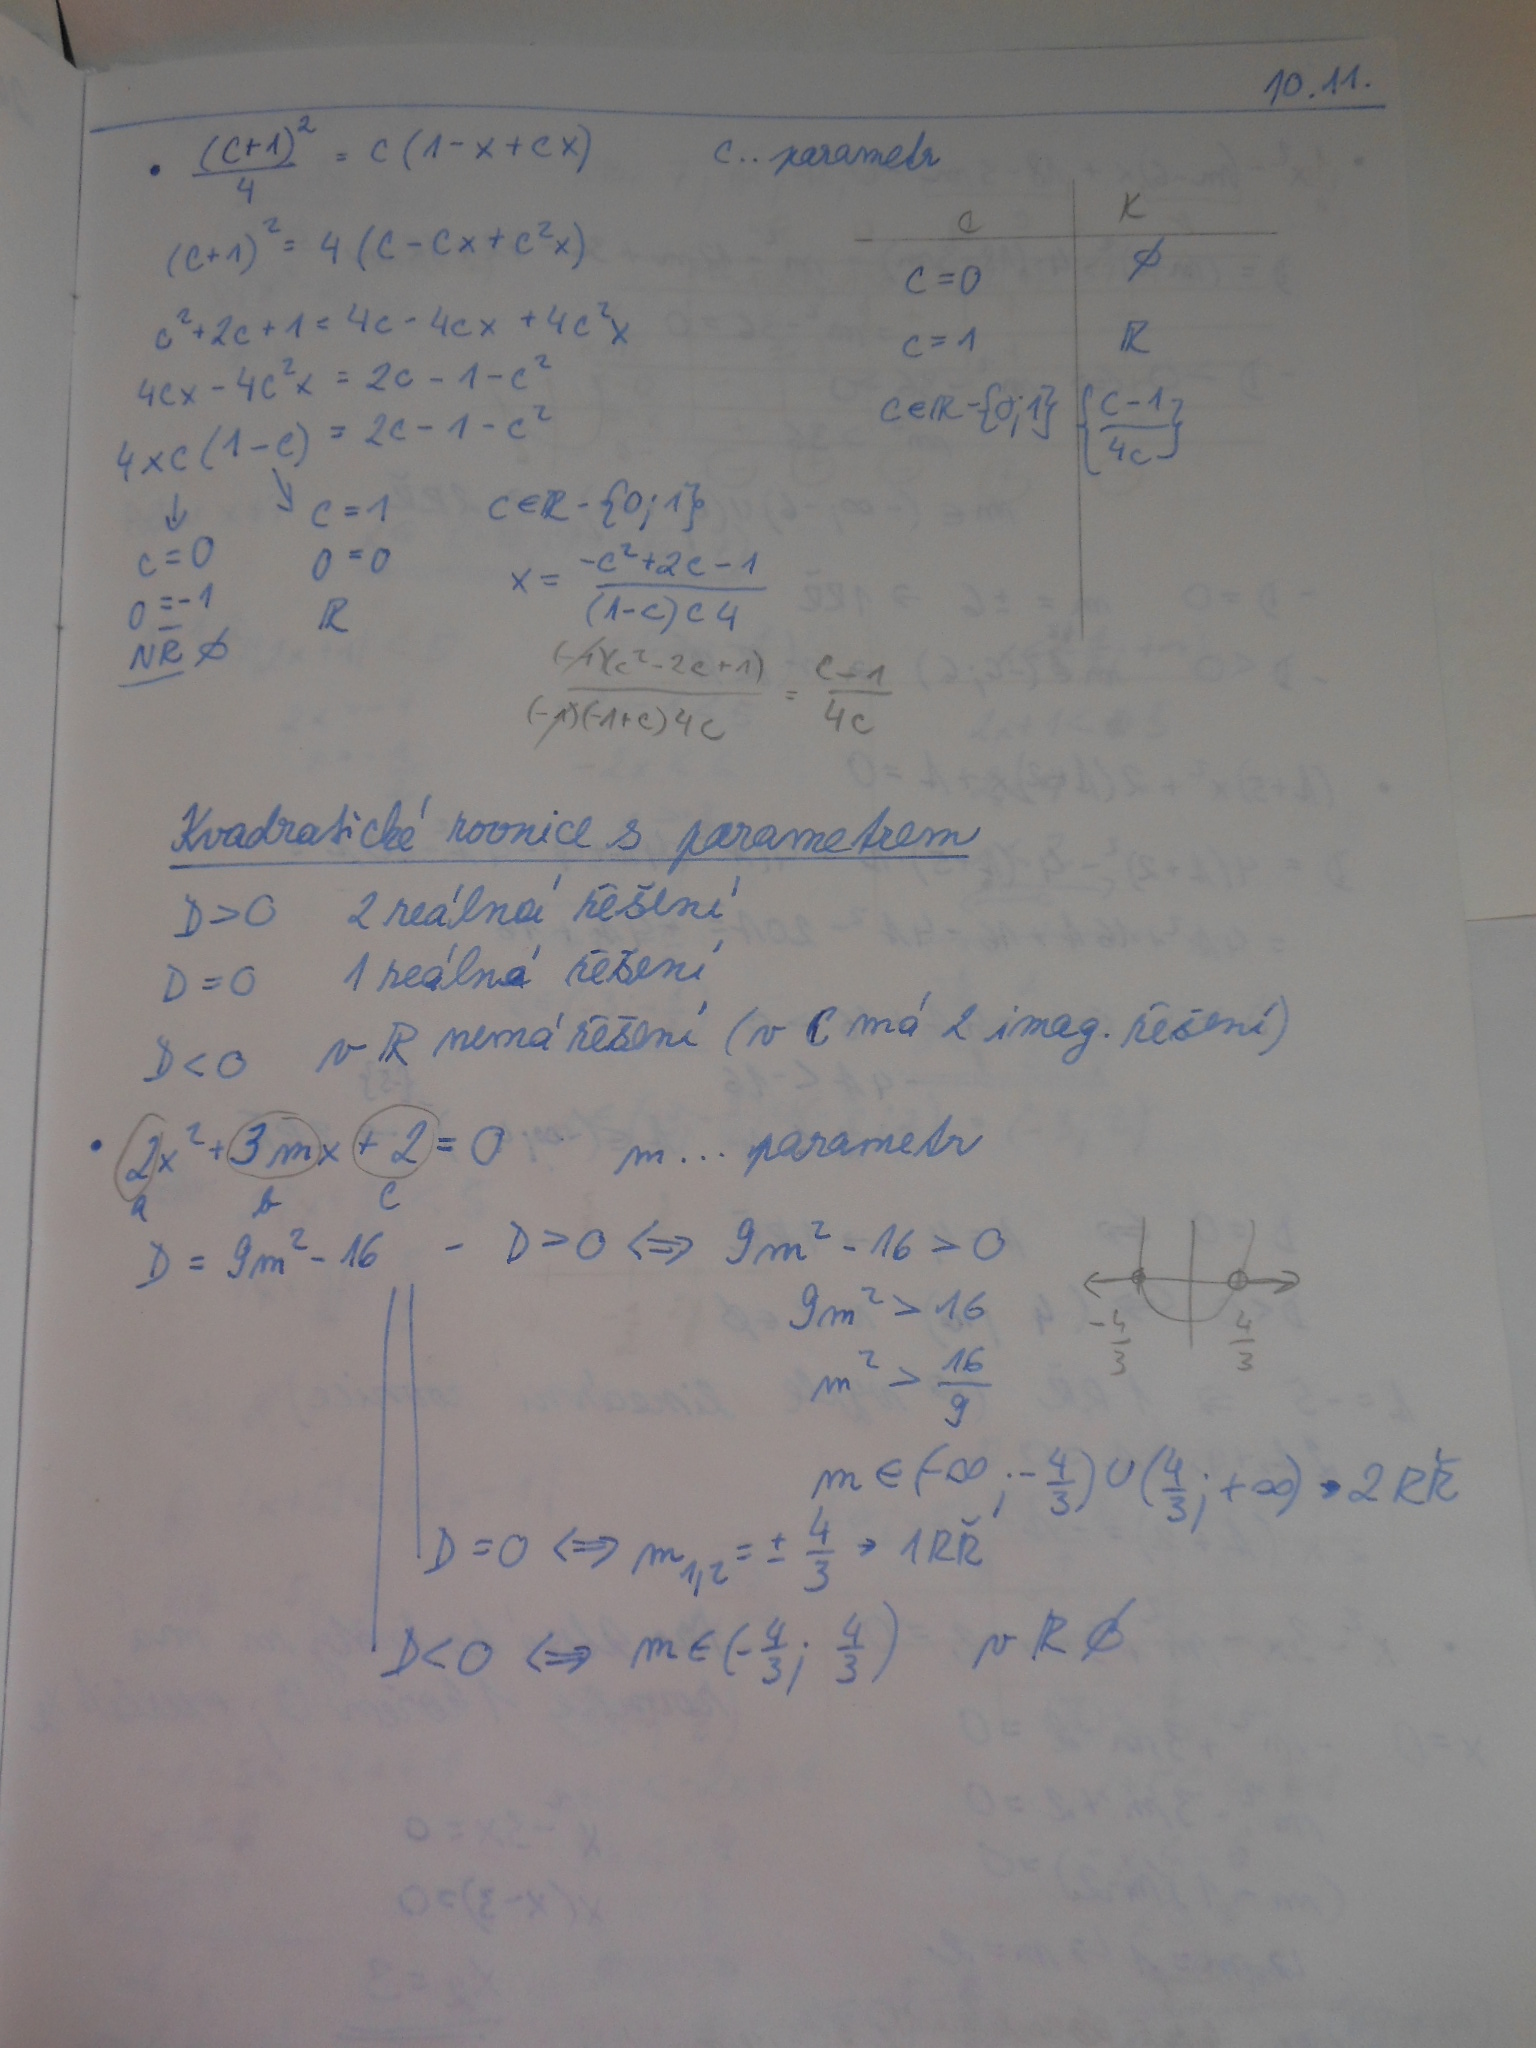 10.11.
• (c+1)²/4 = c(1-x+cx)   c.. parametr
(c+1)² = 4(c-cx+c²x)
c²+2c+1 = 4c-4cx+4c²x
4cx-4c²x = 2c-1-c²
4xc(1-c) = 2c-1-c²
↓ ↘
c=0   c=1   c∈ℝ-{0;1}
0=-1   0=0   x = (-c²+2c-1)/((1-c)c4)
NŘ ∅   ℝ
(-1)(c²-2c+1)/((-1)(-1+c)4c) = (c-1)/(4c)
c | K
c=0 | ∅
c=1 | ℝ
c∈ℝ-{0;1} | {(c-1)/(4c)}
Kvadratické rovnice s parametrem
D>0   2 reálná řešení
D=0   1 reálná řešení
D<0   v ℝ nemá řešení (v C má 2 imag. řešení)
• 2x²+3mx+2=0   m... parametr
a   b   c
D = 9m²-16   - D>0 ⇔ 9m²-16>0
9m²>16
m² > 16/9
-4/3   4/3
m∈(-∞;-4/3)∪(4/3;+∞) → 2RŘ
D=0 ⇔ m₁,₂ = ± 4/3 → 1RŘ
D<0 ⇔ m∈(-4/3; 4/3)   v ℝ ∅